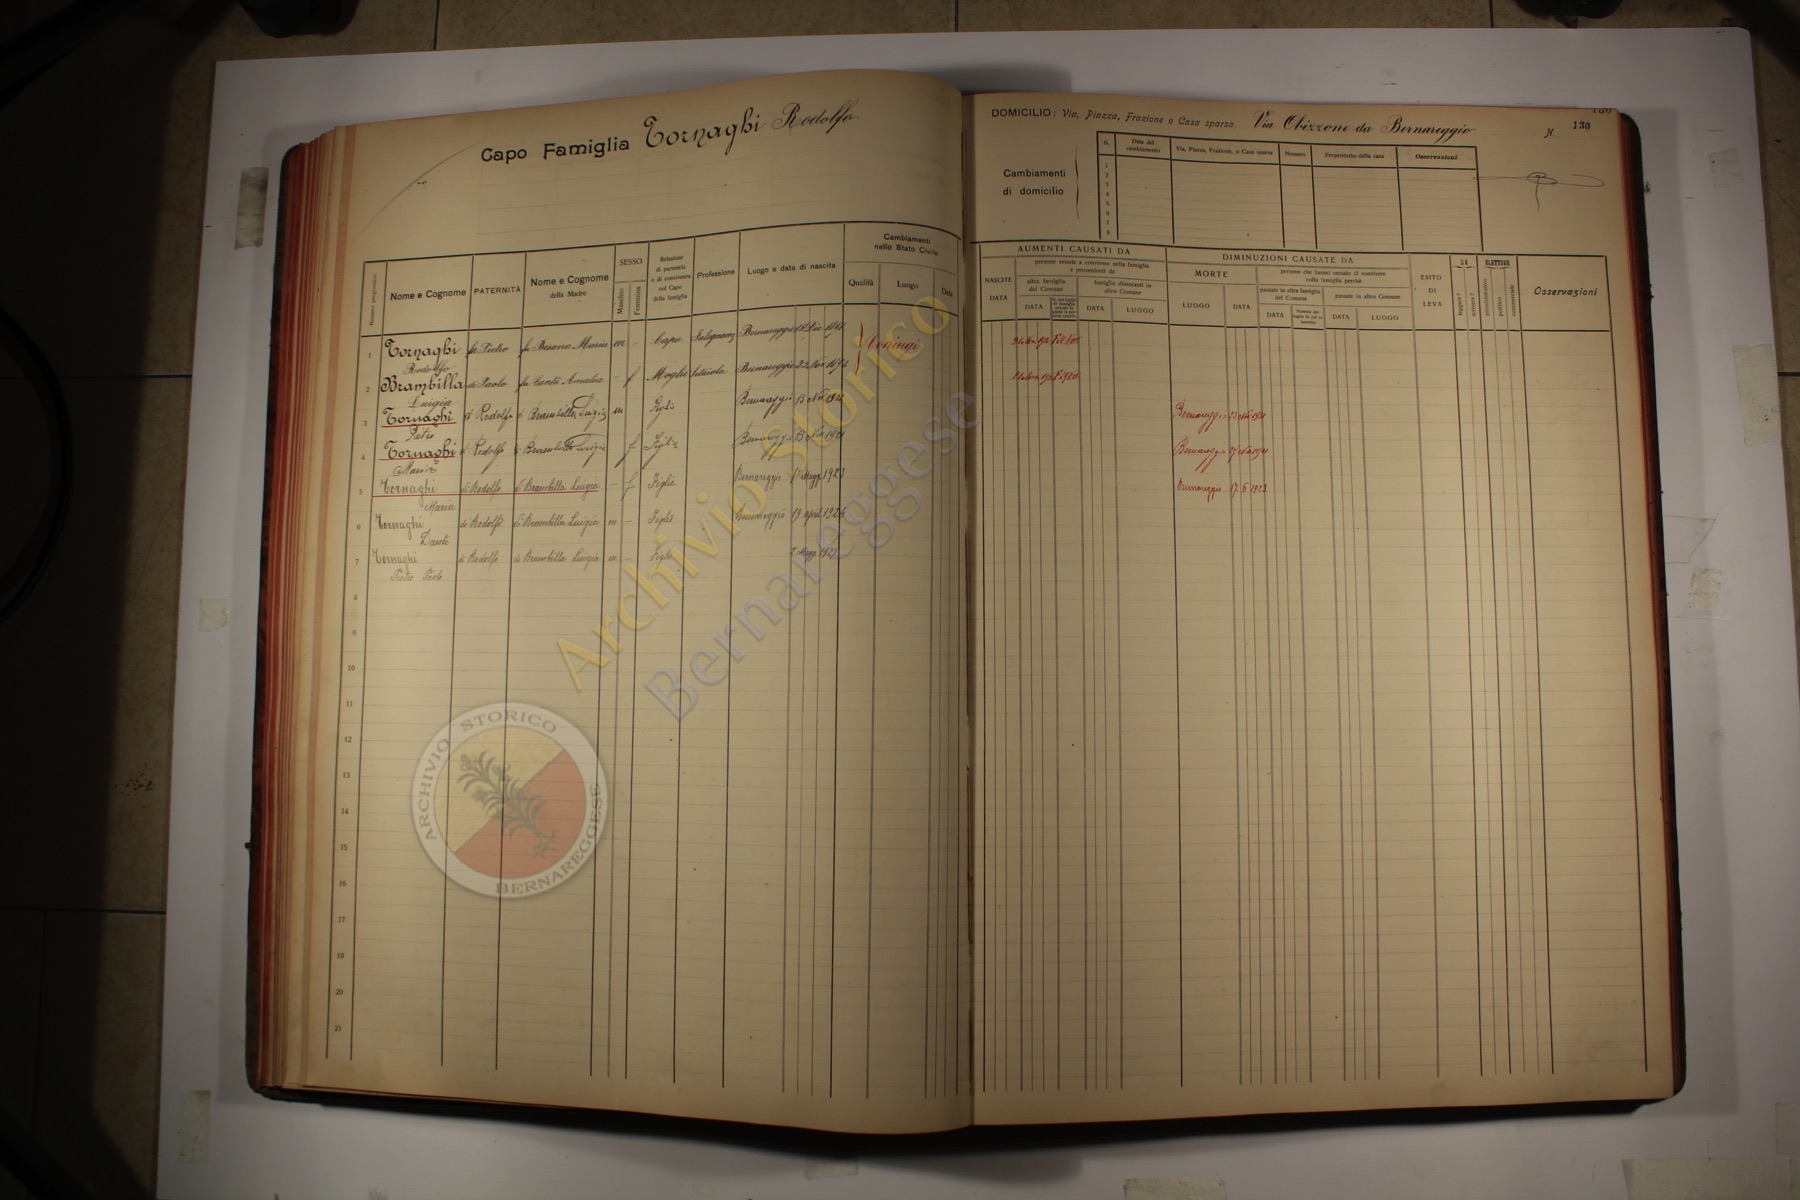 Capo Famiglia Tornaghi Rodolfo
DOMICILIO: Via, Piazza, Frazione o Casa sparsa Via Obizzone da Bernareggio N. 130
Cambiamenti
di domicilio
N. Data del cambiamento Via, Piazza, Frazione, o Casa sparsa Numero Proprietario della casa Osservazioni
1
2
3
4
5
6
7
8
Numero progressivo Nome e Cognome PATERNITÀ Nome e Cognome della Madre SESSO Maschio Femmina Relazione di parentela o di convivenza col Capo della famiglia Professione Luogo e data di nascita Cambiamenti nello Stato Civile Qualità Luogo Data
NASCITE DATA AUMENTI CAUSATI DA persone venute a convivere nella famiglia e provenienti da altra famiglia del Comune DATA famiglie dimoranti in altro Comune DATA LUOGO
DIMINUZIONI CAUSATE DA MORTE LUOGO DATA persone che hanno cessato di convivere nella famiglia perchè passate in altra famiglia del Comune DATA passate in altro Comune DATA LUOGO
ESITO DI LEVA SA leggere? scrivere? ELETTORE amministrativo politico commerciale Osservazioni
1 Tornaghi Rodolfo fu Pietro fu Besana Maria m - Capo Falegname Bernareggio Coniugi
2 Brambilla Luigia di Paolo fu - f Moglie Bernareggio
3 Tornaghi Pietro di Rodolfo di Brambilla Luigia m Figlio Bernareggio 13 Nov 1921 Bernareggio
4 Tornaghi Maria di Rodolfo di Brambilla Luigia f Figlia Bernareggio 13 Nov 1921 Bernareggio
5 Tornaghi Maria di Rodolfo di Brambilla Luigia - f Figlia Bernareggio Magg 1923 Bernareggio 17.6.1923
6 Tornaghi Dante di Rodolfo di Brambilla Luigia m - Figlio Bernareggio 19 april 1926
7 Tornaghi Pietro Paolo di Rodolfo di Brambilla Luigia m - Figlio Magg
8
9
10
11
12
13
14
15
16
17
18
19
20
21
Archivio Storico
Bernareggese
ARCHIVIO STORICO
BERNAREGGESE